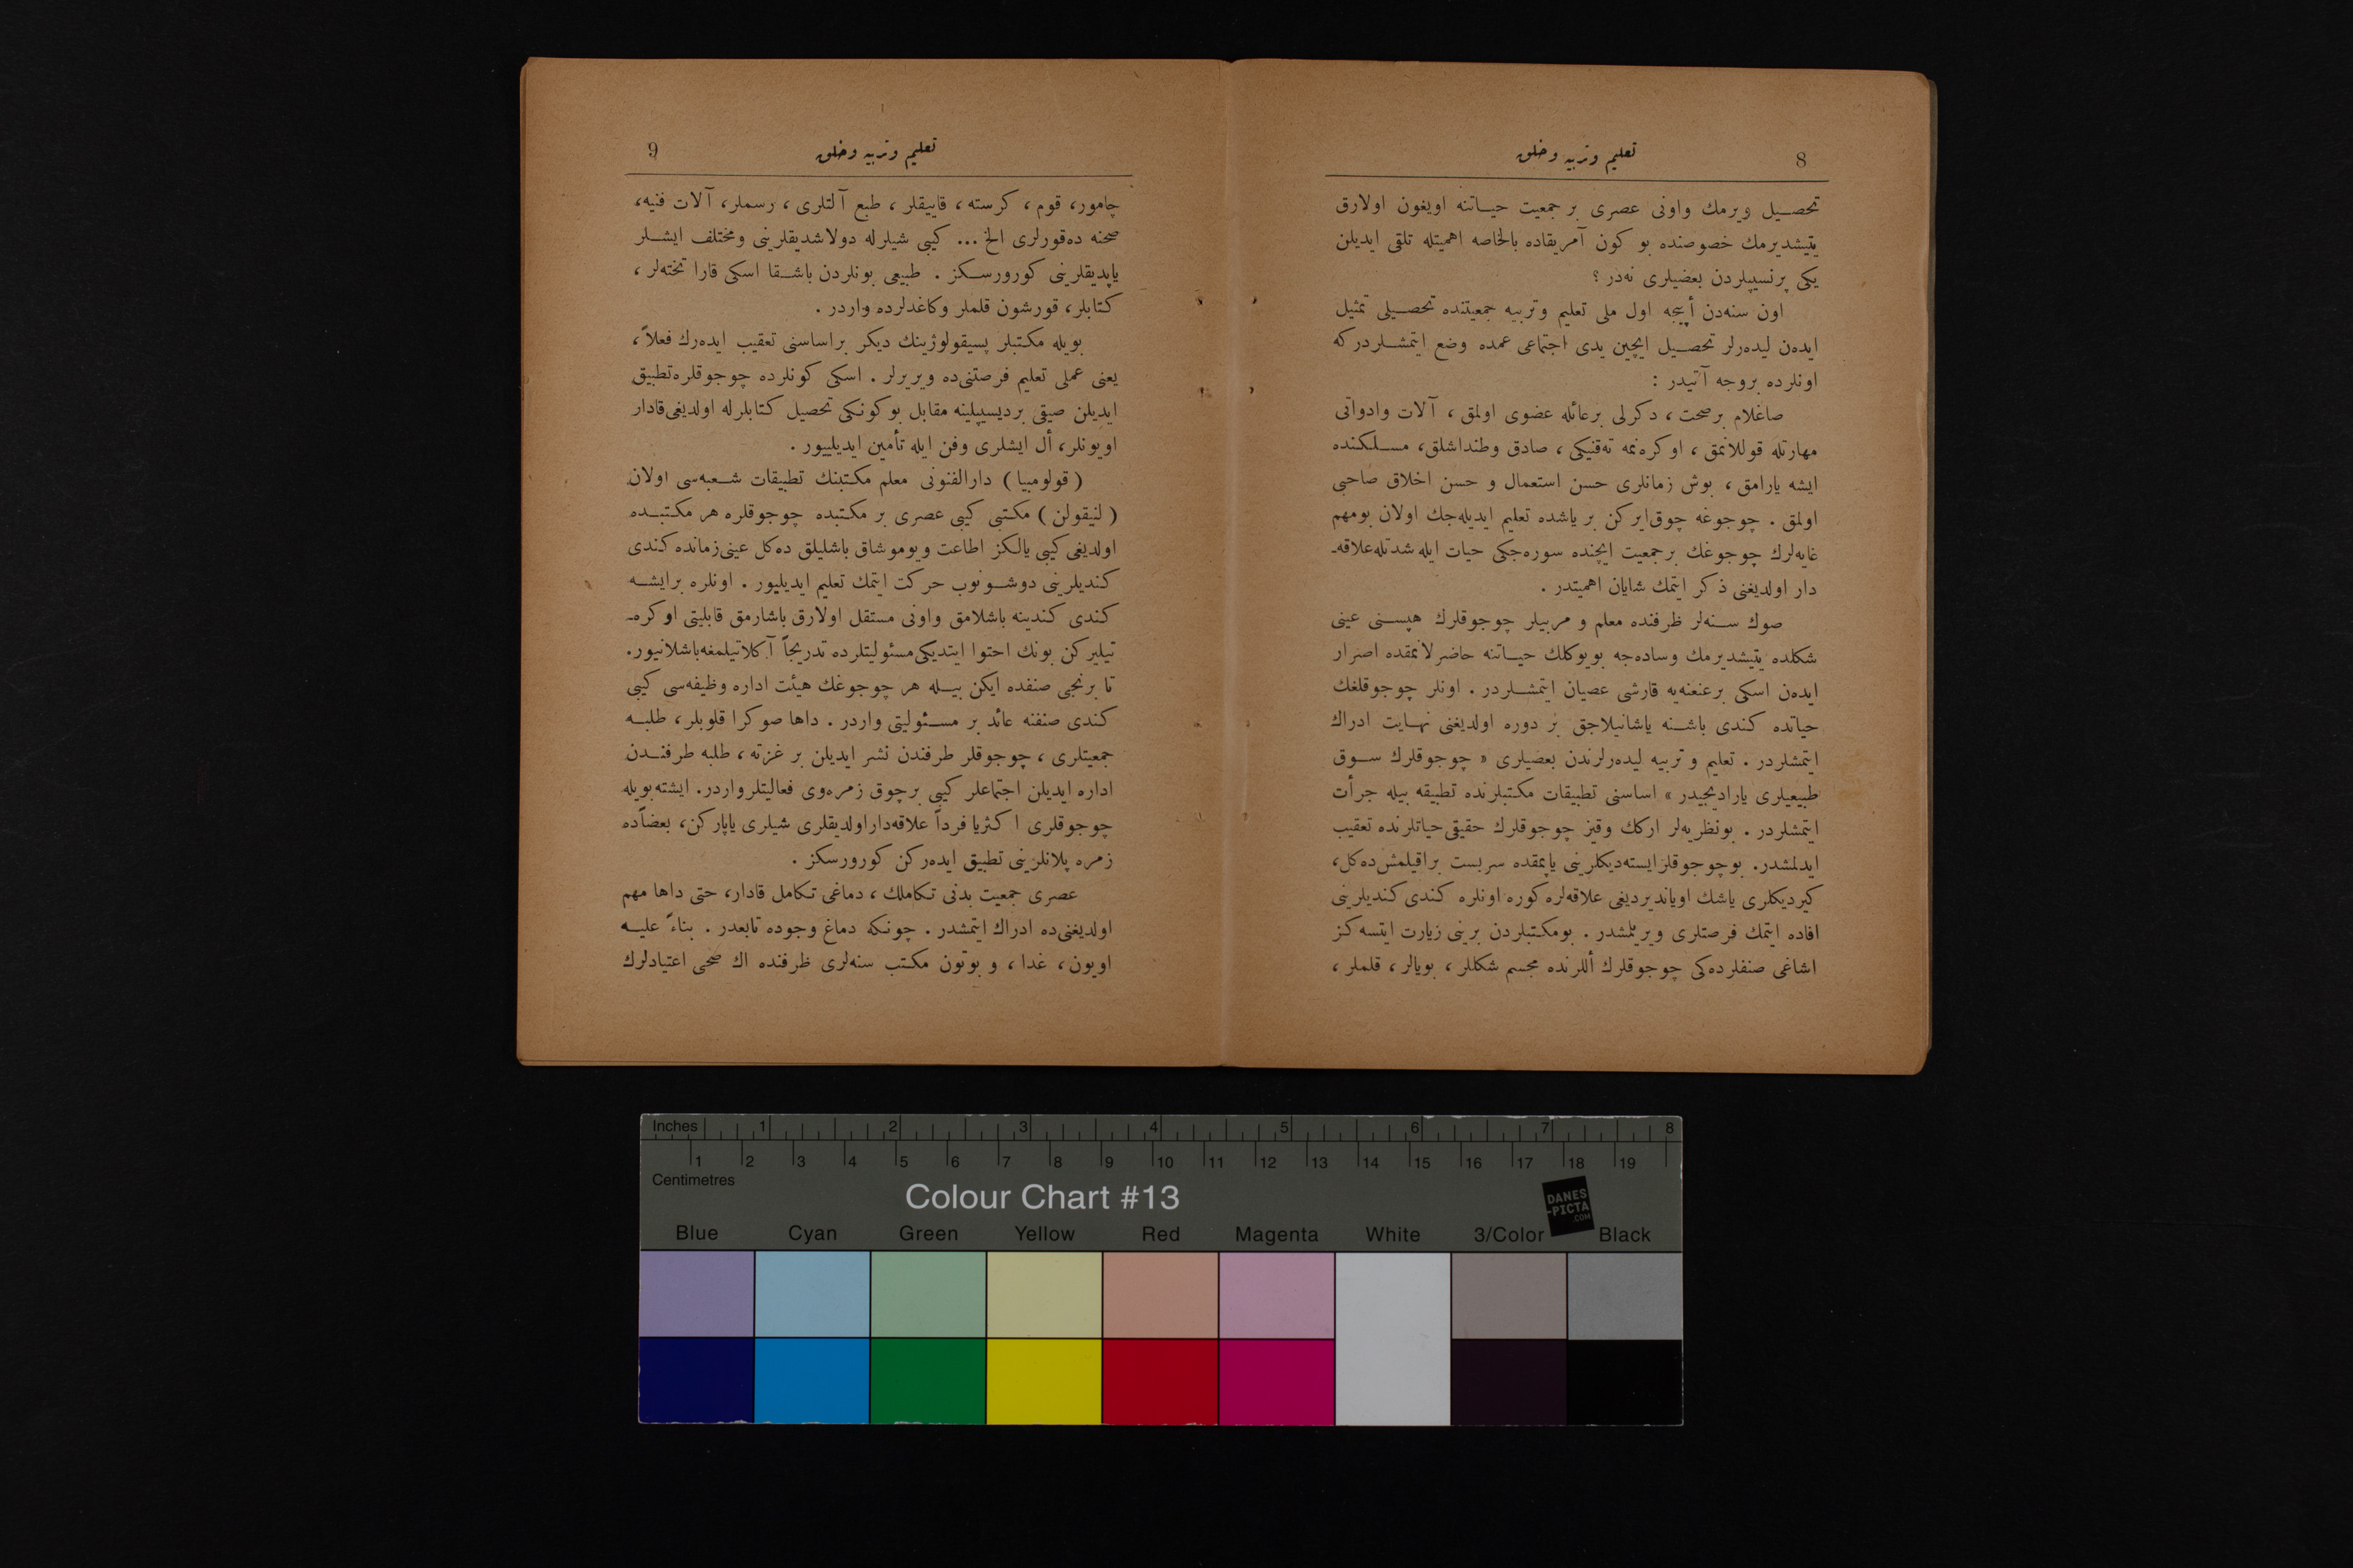 8
تعليم وتربيه وخلق
تحصيل ويرمك واونى عصرى بر جمعيت حياتنه اويغون اولارق
يتيشديرمك خصوصنده بو كون آمريقاده بالخاصه اهميتله تلقى ايديلن
يكى پرنسيپلردن بعضيلرى نه‌در ؟
اون سنه‌دن أييجه اول ملى تعليم وتربيه جمعيتنده تحصيلى تمثيل
ايده‌ن ليده‌رلر تحصيل ايچين يدى اجتماعى عمده وضع ايتمشلردركه
اونلرده بروجه آتيدر :
صاغلام برصحت ، دكرلى برعائله عضوى اولمق ، آلات وادواتى
مهارتله قوللانمق ، اوكره‌نمه ته‌قنيكى ، صادق وطنداشلق، مسلكنده
ايشه يارامق ، بوش زمانلرى حسن استعمال و حسن اخلاق صاحبى
اولمق . چوجوغه چوق‌ايركن بر ياشده تعليم ايديله‌جك اولان بومهم
غايه‌لرك چوجوغك برجمعيت ايچنده سوره‌جكى حيات ايله شدتله‌علاقه‌ـ
دار اولديغنى ذكر ايتمك شايان اهميتدر .
صوك سنه‌لر ظرفنده معلم و مربيلر چوجوقلرك هپسنى عينى
شكلده يتيشديرمك وساده‌جه بويوكلك حياتنه حاضرلانمقده اصرار
ايده‌ن اسكى برعنعنه‌يه قارشى عصيان ايتمشلردر . اونلر چوجوقلغك
حياتده كندى باشنه ياشانيلاجق بر دوره اولديغنى نهايت ادراك
ايتمشلردر . تعليم و تربيه ليده‌رلرندن بعضيلرى « چوجوقلرك سوق
طبيعيلرى ياراديجيدر » اساسنى تطبيقات مكتبلرنده تطبيقه بيله جرأت
ايتمشلردر . بونظريه‌لر اركك وقيز چوجوقلرك حقيقى‌حياتلرنده تعقيب
ايدلمشدر. بوچوجوقلر ايسته‌ديكلرينى ياپمقده سربست براقيلمش‌ده‌كل،
كيرديكلرى ياشك اوياندیرديغى علاقه‌لره كوره اونلره كندى كنديلرينى
افاده ايتمك فرصتلرى ويريلمشدر . بومكتبلردن برينى زيارت ايتسه كز
اشاغى صنفلرده‌كى چوجوقلرك أللرنده مجسم شكللر ، بويالر ، قلملر ،
9
تعليم وتربيه وخلق
چامور، قوم ، كرسته ، قاييقلر ، طبع آلتلرى ، رسملر، آلات فنيه،
صحنه ده‌قورلرى الخ ... كيبى شيلرله دولاشديقلرينى ومختلف ايشلر
ياپديقلرينى كورورسكز . طبيعى بونلردن باشقا اسكى قارا تخته‌لر ،
كتابلر، قورشون قلملر وكاغدلرده واردر .
بويله مكتبلر پسيقولوژينك ديكر براساسنى تعقيب ايده‌رك فعلاً،
يعنى عملى تعليم فرصتنى‌ده ويريرلر . اسكى كونلرده چوجوقلره‌تطبيق
ايديلن صيقى برديسيپلينه مقابل بوكونكى تحصيل كتابلرله اولديغى‌قادار
اويونلر، أل ايشلرى وفن ايله تأمين ايديلييور .
( قولومبيا ) دارالفنونى معلم مكتبنك تطبيقات شعبه‌سى اولان
( لنيقولن ) مكتبى كيبى عصرى بر مكتبده چوجوقلره هر مكتبده
اولديغى‌كيبى يالكز اطاعت ويوموشاق باشليلق ده‌كل عينى‌زمانده كندى
كنديلرينى دوشونوب حركت ايتمك تعليم ايديليور . اونلره برايشه
كندى كندينه باشلامق واونى مستقل اولارق باشارمق قابليتى اوكره‌ـ
تيليركن بونك احتوا ايتديكى‌مسئوليتلرده تدريجاً آكلاتيلمغه‌باشلانيور.
تا برنجى صنفده ايكن بيله هر چوجوغك هيئت اداره وظيفه‌سى كيبى
كندى صنفنه عائد بر مسئوليتى واردر . داها صوكرا قلوبلر، طلبه
جمعيتلرى ، چوجوقلر طرفندن نشر ايديلن بر غزته ، طلبه طرفندن
اداره ايديلن اجتماعلر كيبى برچوق زمره‌وى فعاليتلرواردر. ايشته‌بويله
چوجوقلرى اكثريا فرداً علاقه‌داراولديقلرى شيلرى ياپاركن، بعضاًده
زمره پلانلرينى تطبيق ايده‌ركن كورورسكز .
عصرى جمعيت بدنى تكاملك ، دماغى تكامل قادار، حتى داها مهم
اولديغنى‌ده ادراك ايتمشدر . چونكه دماغ وجوده تابعدر . بناءً عليه
اويون ، غدا ، و بوتون مكتب سنه‌لرى ظرفنده اك صحى اعتيادلرك
Inches 1 2 3 4 5 6 7 8
1 2 3 4 5 6 7 8 9 10 11 12 13 14 15 16 17 18 19
Centimetres
Colour Chart #13
DANES
-PICTA
.COM
Blue Cyan Green Yellow Red Magenta White 3/Color Black